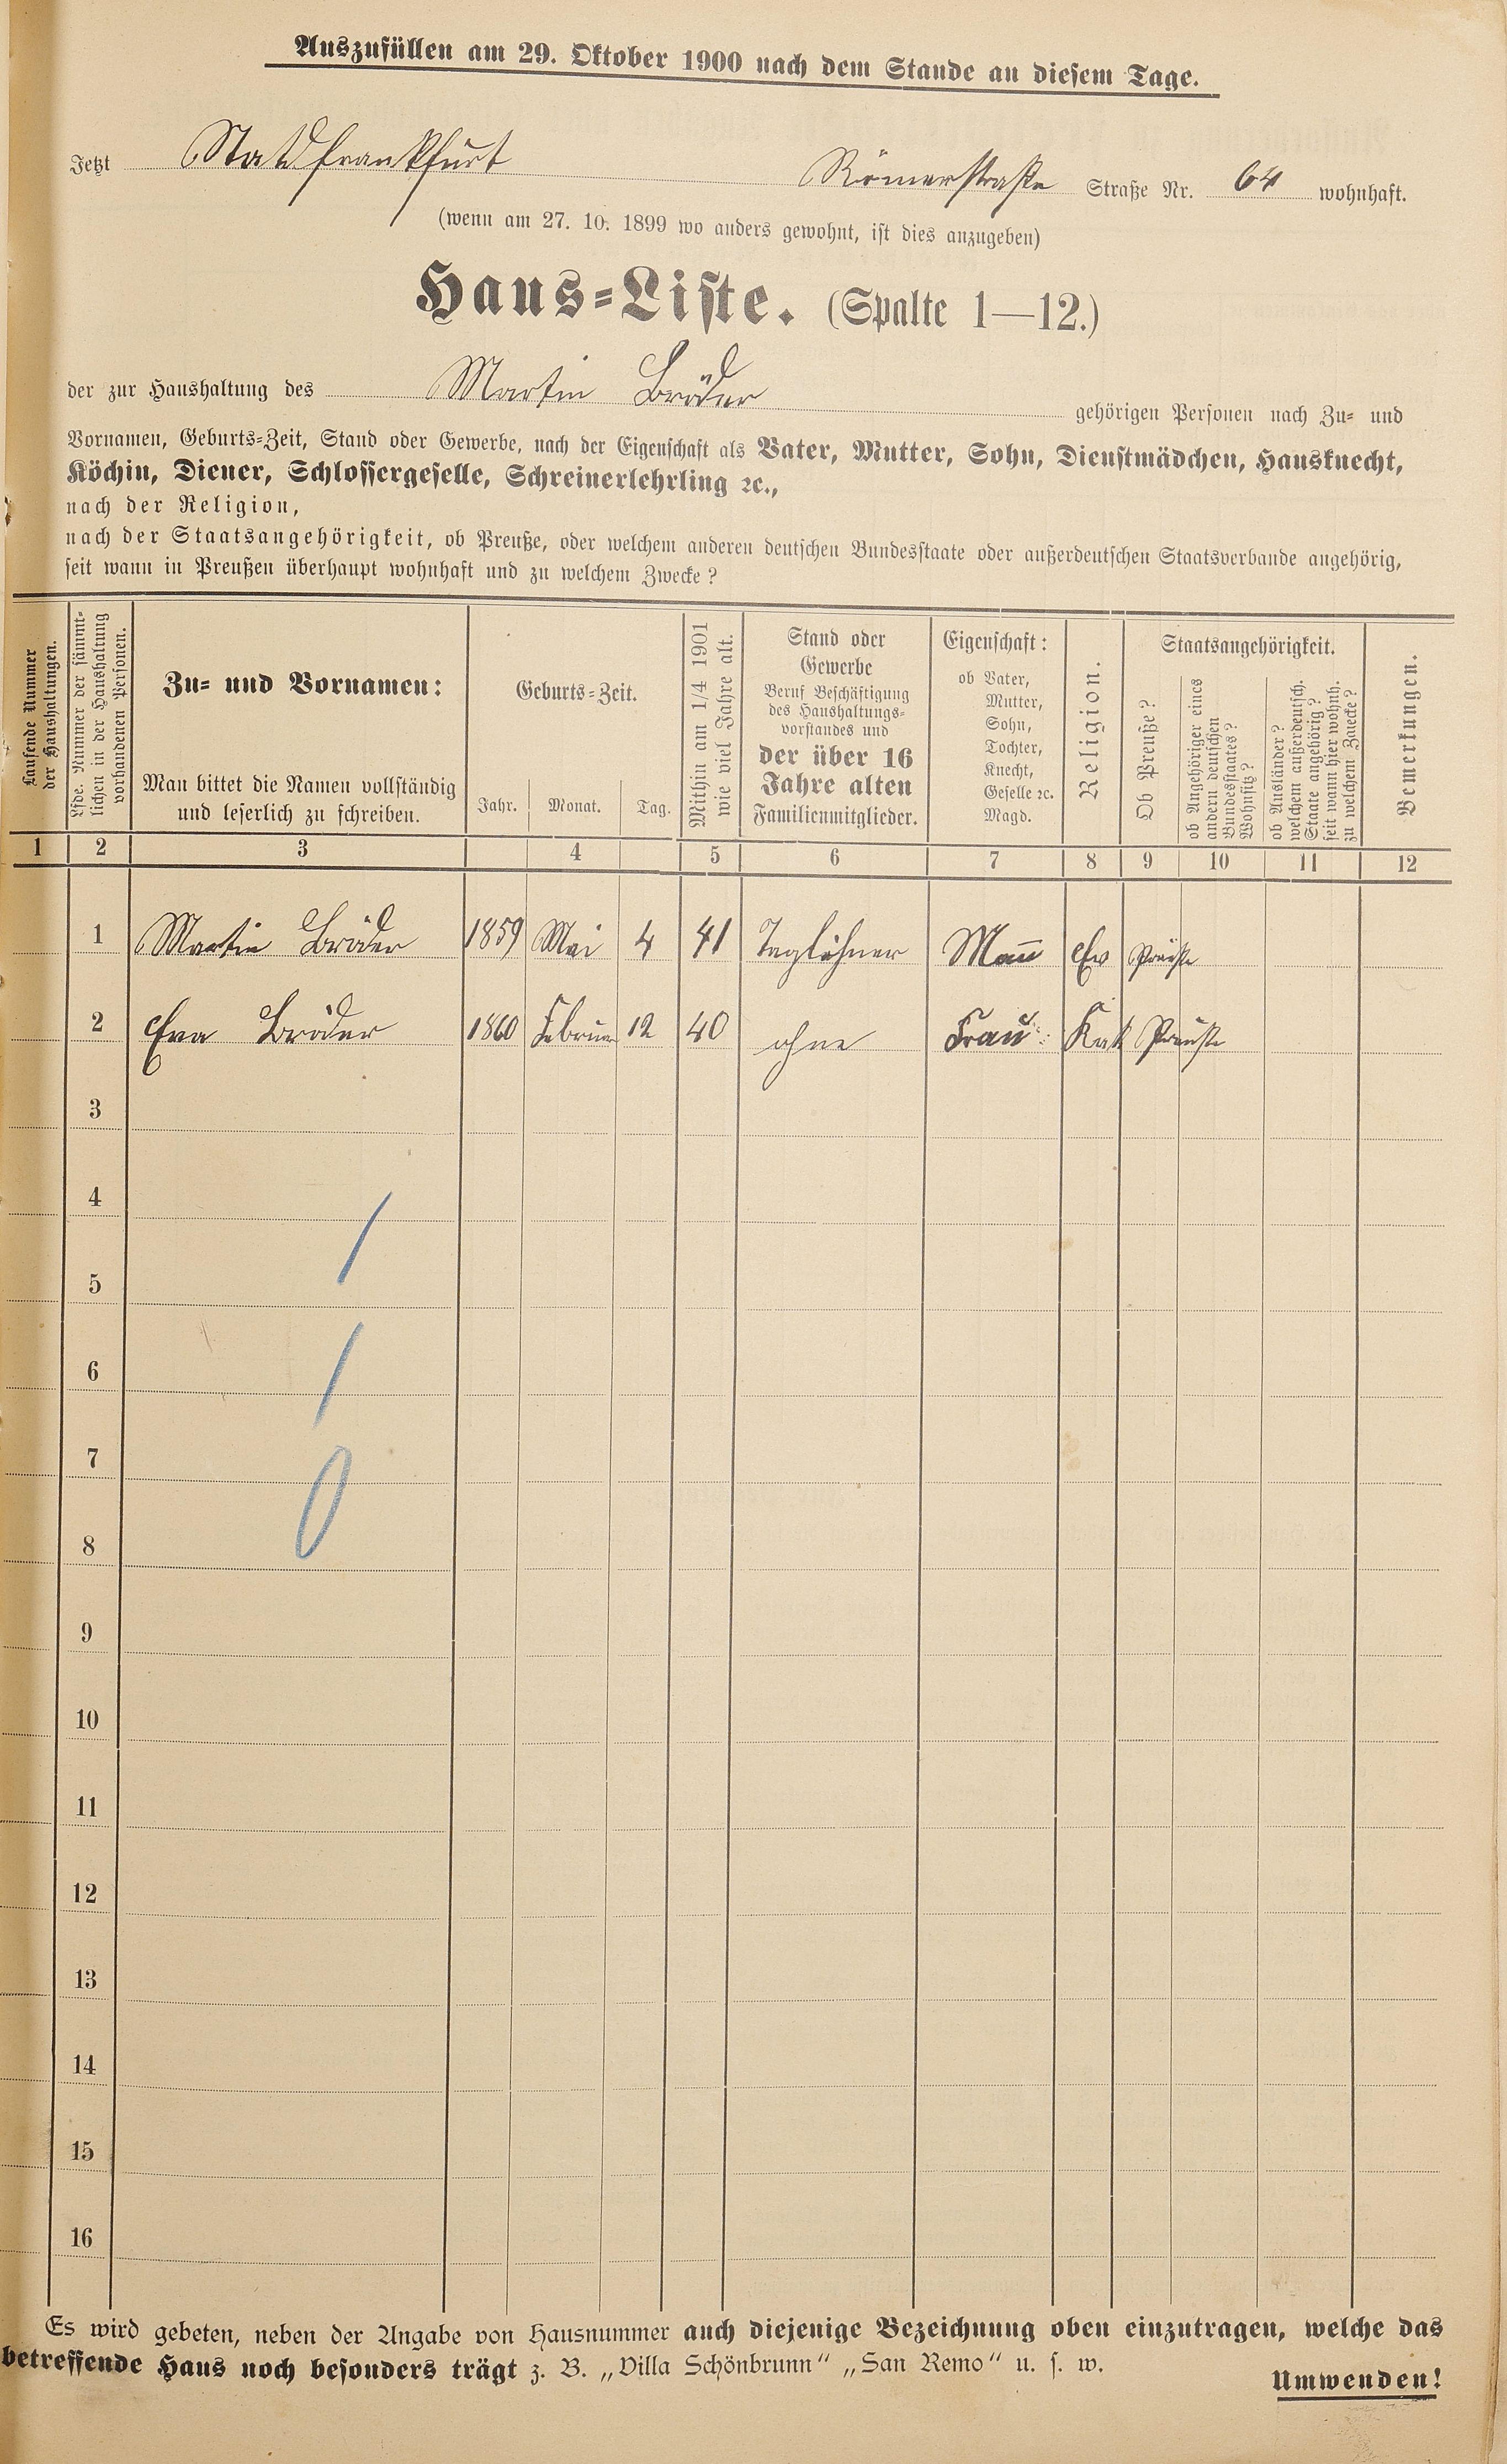 Auszufüllen am 29. Oktober 1900 nach dem Stande an diesem Tage.
Jetzt Statdfrankfurt Römerstraße Straße Nr. 64 wohnhaft.
(wenn am 27. 10. 1899 wo anders gewohnt, ist dies anzugeben)
Haus=Liste. (Spalte 1—12.)
der zur Haushaltung des Martin Bröder gehörigen Personen nach Zu= und
Vornamen, Geburts=Zeit, Stand oder Gewerbe, nach der Eigenschaft als Vater, Mutter, Sohn, Dienstmädchen, Hausknecht,
Köchin, Diener, Schlossergeselle, Schreinerlehrling ꝛc.,
nach der Religion,
nach der Staatsangehörigkeit, ob Preuße, oder welchem anderen deutschen Bundesstaate oder außerdeutschen Staatsverbande angehörig,
seit wann in Preußen überhaupt wohnhaft und zu welchem Zwecke?
Laufende Nummer
der Haushaltungen.
Lfde. Nummer der sämmt=
lichen in der Haushaltung
vorhandenen Personen.
Zu= und Vornamen:
Man bittet die Namen vollständig
und leserlich zu schreiben.
Geburts=Zeit.
Jahr. Monat. Tag.
Mithin am 1/4 1901
wie viel Jahre alt.
Stand oder
Gewerbe
Beruf Beschäftigung
des Haushaltungs=
vorstandes und
der über 16
Jahre alten
Familienmitglieder.
Eigenschaft:
ob Vater,
Mutter,
Sohn,
Tochter,
Knecht,
Geselle ꝛc.
Magd.
Religion.
Staatsangehörigkeit.
Ob Preuße?
ob Angehöriger eines
andern deutschen
Bundesstaates?
Wohnsitz?
ob Ausländer?
welchem außerdeutsch.
Staate angehörig?
seit wann hier wohnh.
zu welchem Zwecke?
Bemerkungen.
1 2 3 4 5 6 7 8 9 10 11 12
1 Martin Bröder 1859 Mai 4 41 Taglöhner Mann Ev Preuße
2 Eva Bröder 1860 Februar 12 40 ohne Frau Kat Preuße
3
4
5
6
7
8
9
10
11
12
13
14
15
16
Es wird gebeten, neben der Angabe von Hausnummer auch diejenige Bezeichnung oben einzutragen, welche das
betreffende Haus noch besonders trägt z. B. „Villa Schönbrunn“ „San Remo“ u. s. w.
Umwenden!